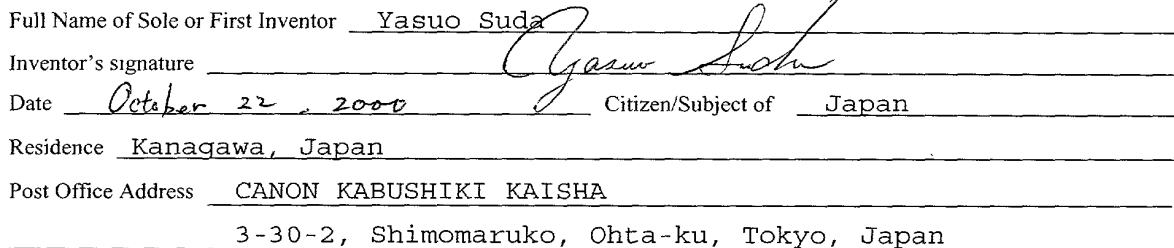 Full Name of Sole or First Inventor Yasuo Suda
Inventor's signature Yasuo Suda
Date October 22, 2000 Citizen/Subject of Japan
Residence Kanagawa, Japan
Post Office Address CANON KABUSHIKI KAISHA
3-30-2, Shimomaruko, Ohta-ku, Tokyo, Japan